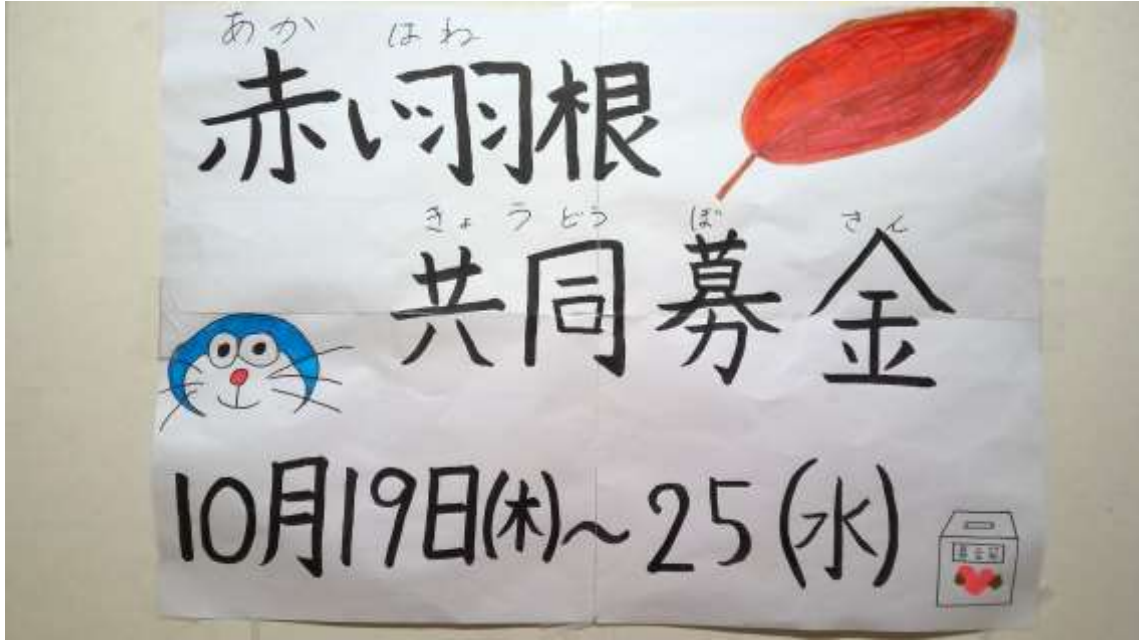 あか はね
赤い羽根
きょうどう ぼ きん
共同募金
10月19日(木)～25(水)
募金箱